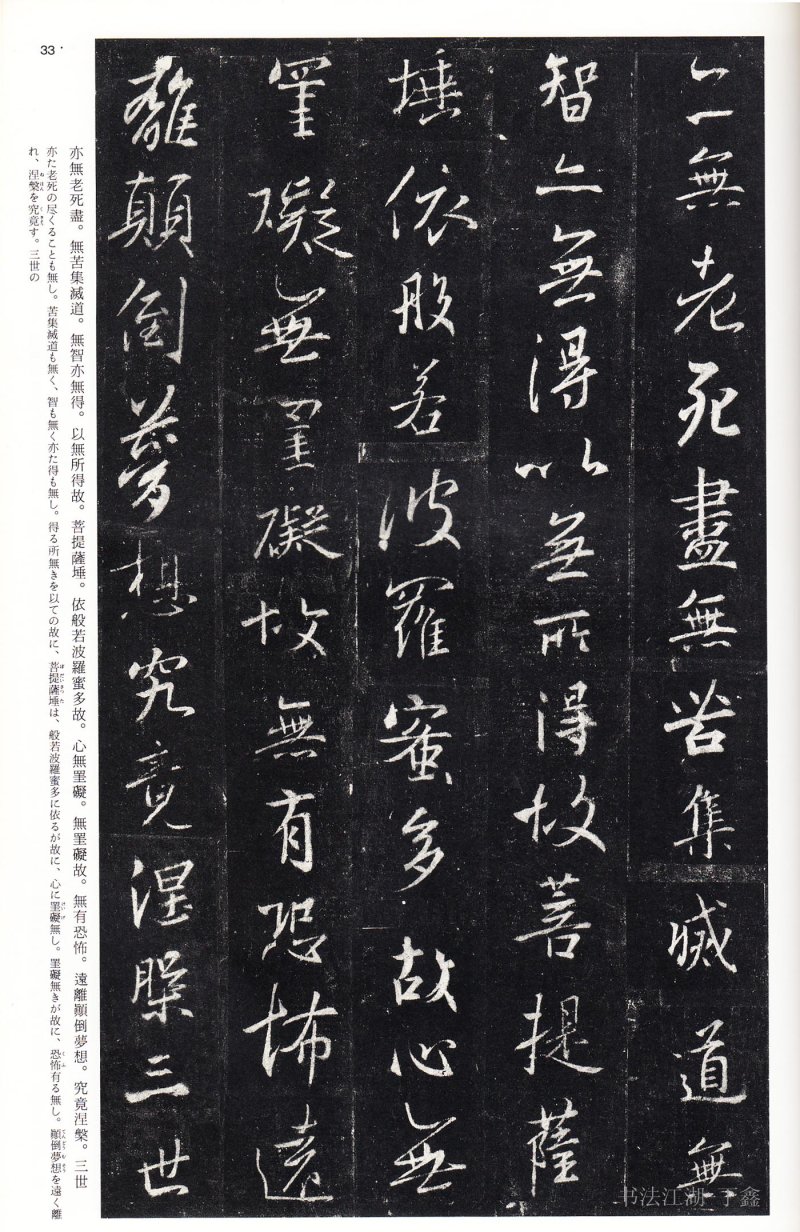 亦無老死盡無苦集滅道無
智亦無得以無所得故菩提薩
埵依般若波羅蜜多故心無
罣礙無罣礙故無有恐怖遠
離顛倒夢想究竟涅槃三世
亦無老死盡。無苦集滅道。無智亦無得。以無所得故。菩提薩埵。依般若波羅蜜多故。心無罣礙。無罣礙故。無有恐怖。遠離顛倒夢想。究竟涅槃。三世
亦た老死の尽くることも無し。苦集滅道も無く、智も無く亦た得も無し。得る所無きを以ての故に、菩提薩埵は、般若波羅蜜多に依るが故に、心に罣礙無し。罣礙無きが故に、恐怖有る無し。顛倒夢想を遠く離
れ、涅槃を究竟す。三世の
33
书法江湖 于鑫